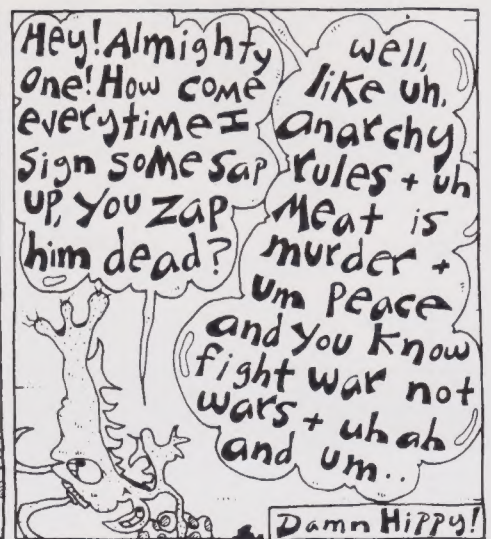 Hey! Almighty
one! How come
everytime I
sign some sap
up, you zap
him dead?
well,
like uh,
anarchy
rules + uh
meat is
murder +
um peace
and you know
fight war not
wars + uh ah
and um..
Damn Hippy!